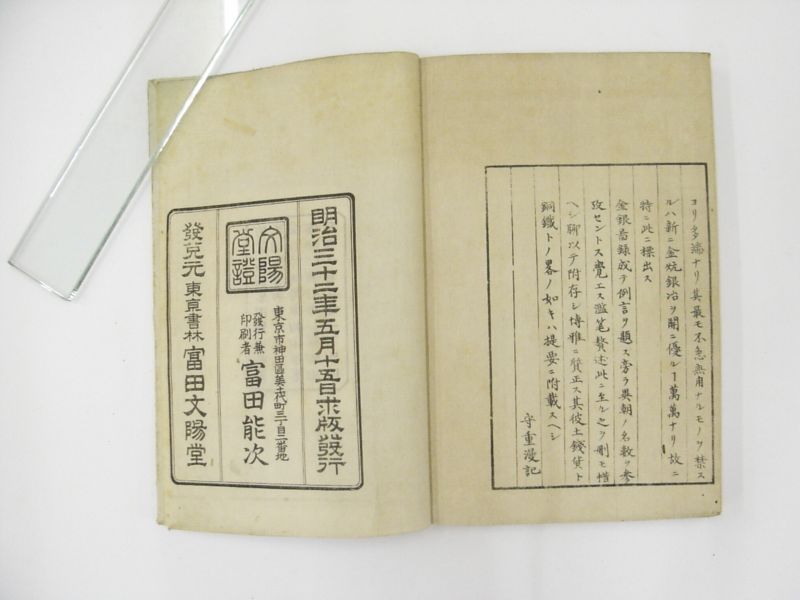 ヨリ多端ナリ其最モ不急無用ナルモノヲ禁ス
ルハ新ニ金坑銀冶ヲ開ニ優ルヿ萬萬ナリ故ニ
特ニ此ニ標出ス
金銀啚録成テ例言ヲ題ス旁ラ異朝ノ名數ヲ參
攷セントス覺エス濫筆贅述此ニ至ル之ヲ刪モ惜
ヘシ聊以テ附存シ博雅ニ質正ス其彼土錢貨ト
銅鐵トノ畧ノ如キハ提要ニ附載スヘシ
守重漫記
明治三十二年五月十五日求版發行
文陽堂證
東京市神田區美土代町三丁目二番地
發行兼印刷者 富田能次
發兌元 東京書林 富田文陽堂